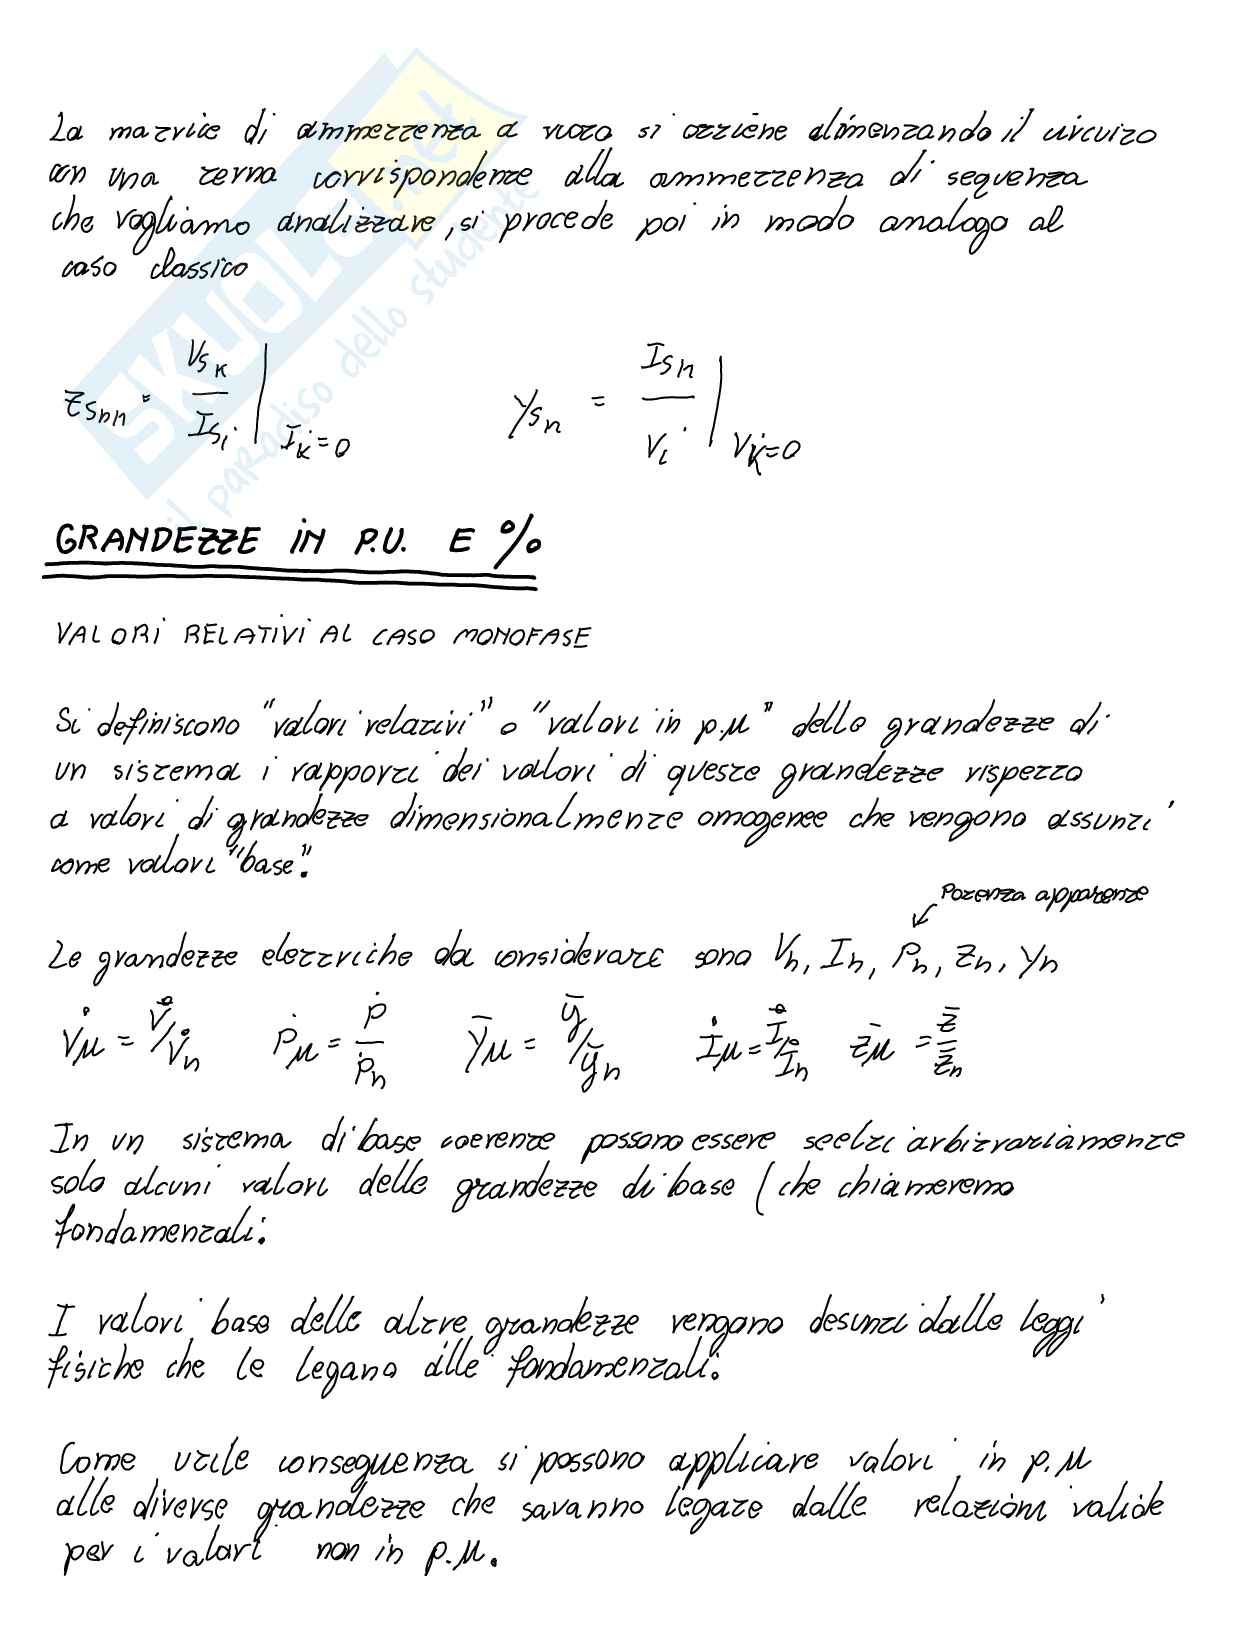 La matrice di ammettenza a vuoto si ottiene alimentando il circuito
con una terna corrispondente alla ammettenza di sequenza
che vogliamo analizzare, si procede poi in modo analogo al
caso classico
SKUOLA.net
il paradiso dello studente
Z̄Snn = VSK / ISi | İK=0    ySn = ISn / Vi | V̇K=0
GRANDEZZE IN P.U. E %
VALORI RELATIVI AL CASO MONOFASE
Si definiscono "valori relativi" o "valori in p.μ" delle grandezze di
un sistema i rapporti dei valori di queste grandezze rispetto
a valori di grandezze dimensionalmente omogenee che vengono assunti
come valori "base".
Potenza apparente
Le grandezze elettriche da considerare sono Vn, In, Pn, Zn, Yn
V̇μ = V̇/V̇n    Ṗμ = Ṗ/Ṗn    Ȳμ = ȳ/ȳn    İμ = İ/İn    z̄μ = z̄/z̄n
In un sistema di base coerente possono essere scelti arbitrariamente
solo alcuni valori delle grandezze di base (che chiameremo
fondamentali.
I valori base delle altre grandezze vengono desunti dalle leggi
fisiche che le legano alle fondamentali.
Come utile conseguenza si possono applicare valori in p.μ
alle diverse grandezze che savanno legate dalle relazioni valide
per i valori non in p.μ.